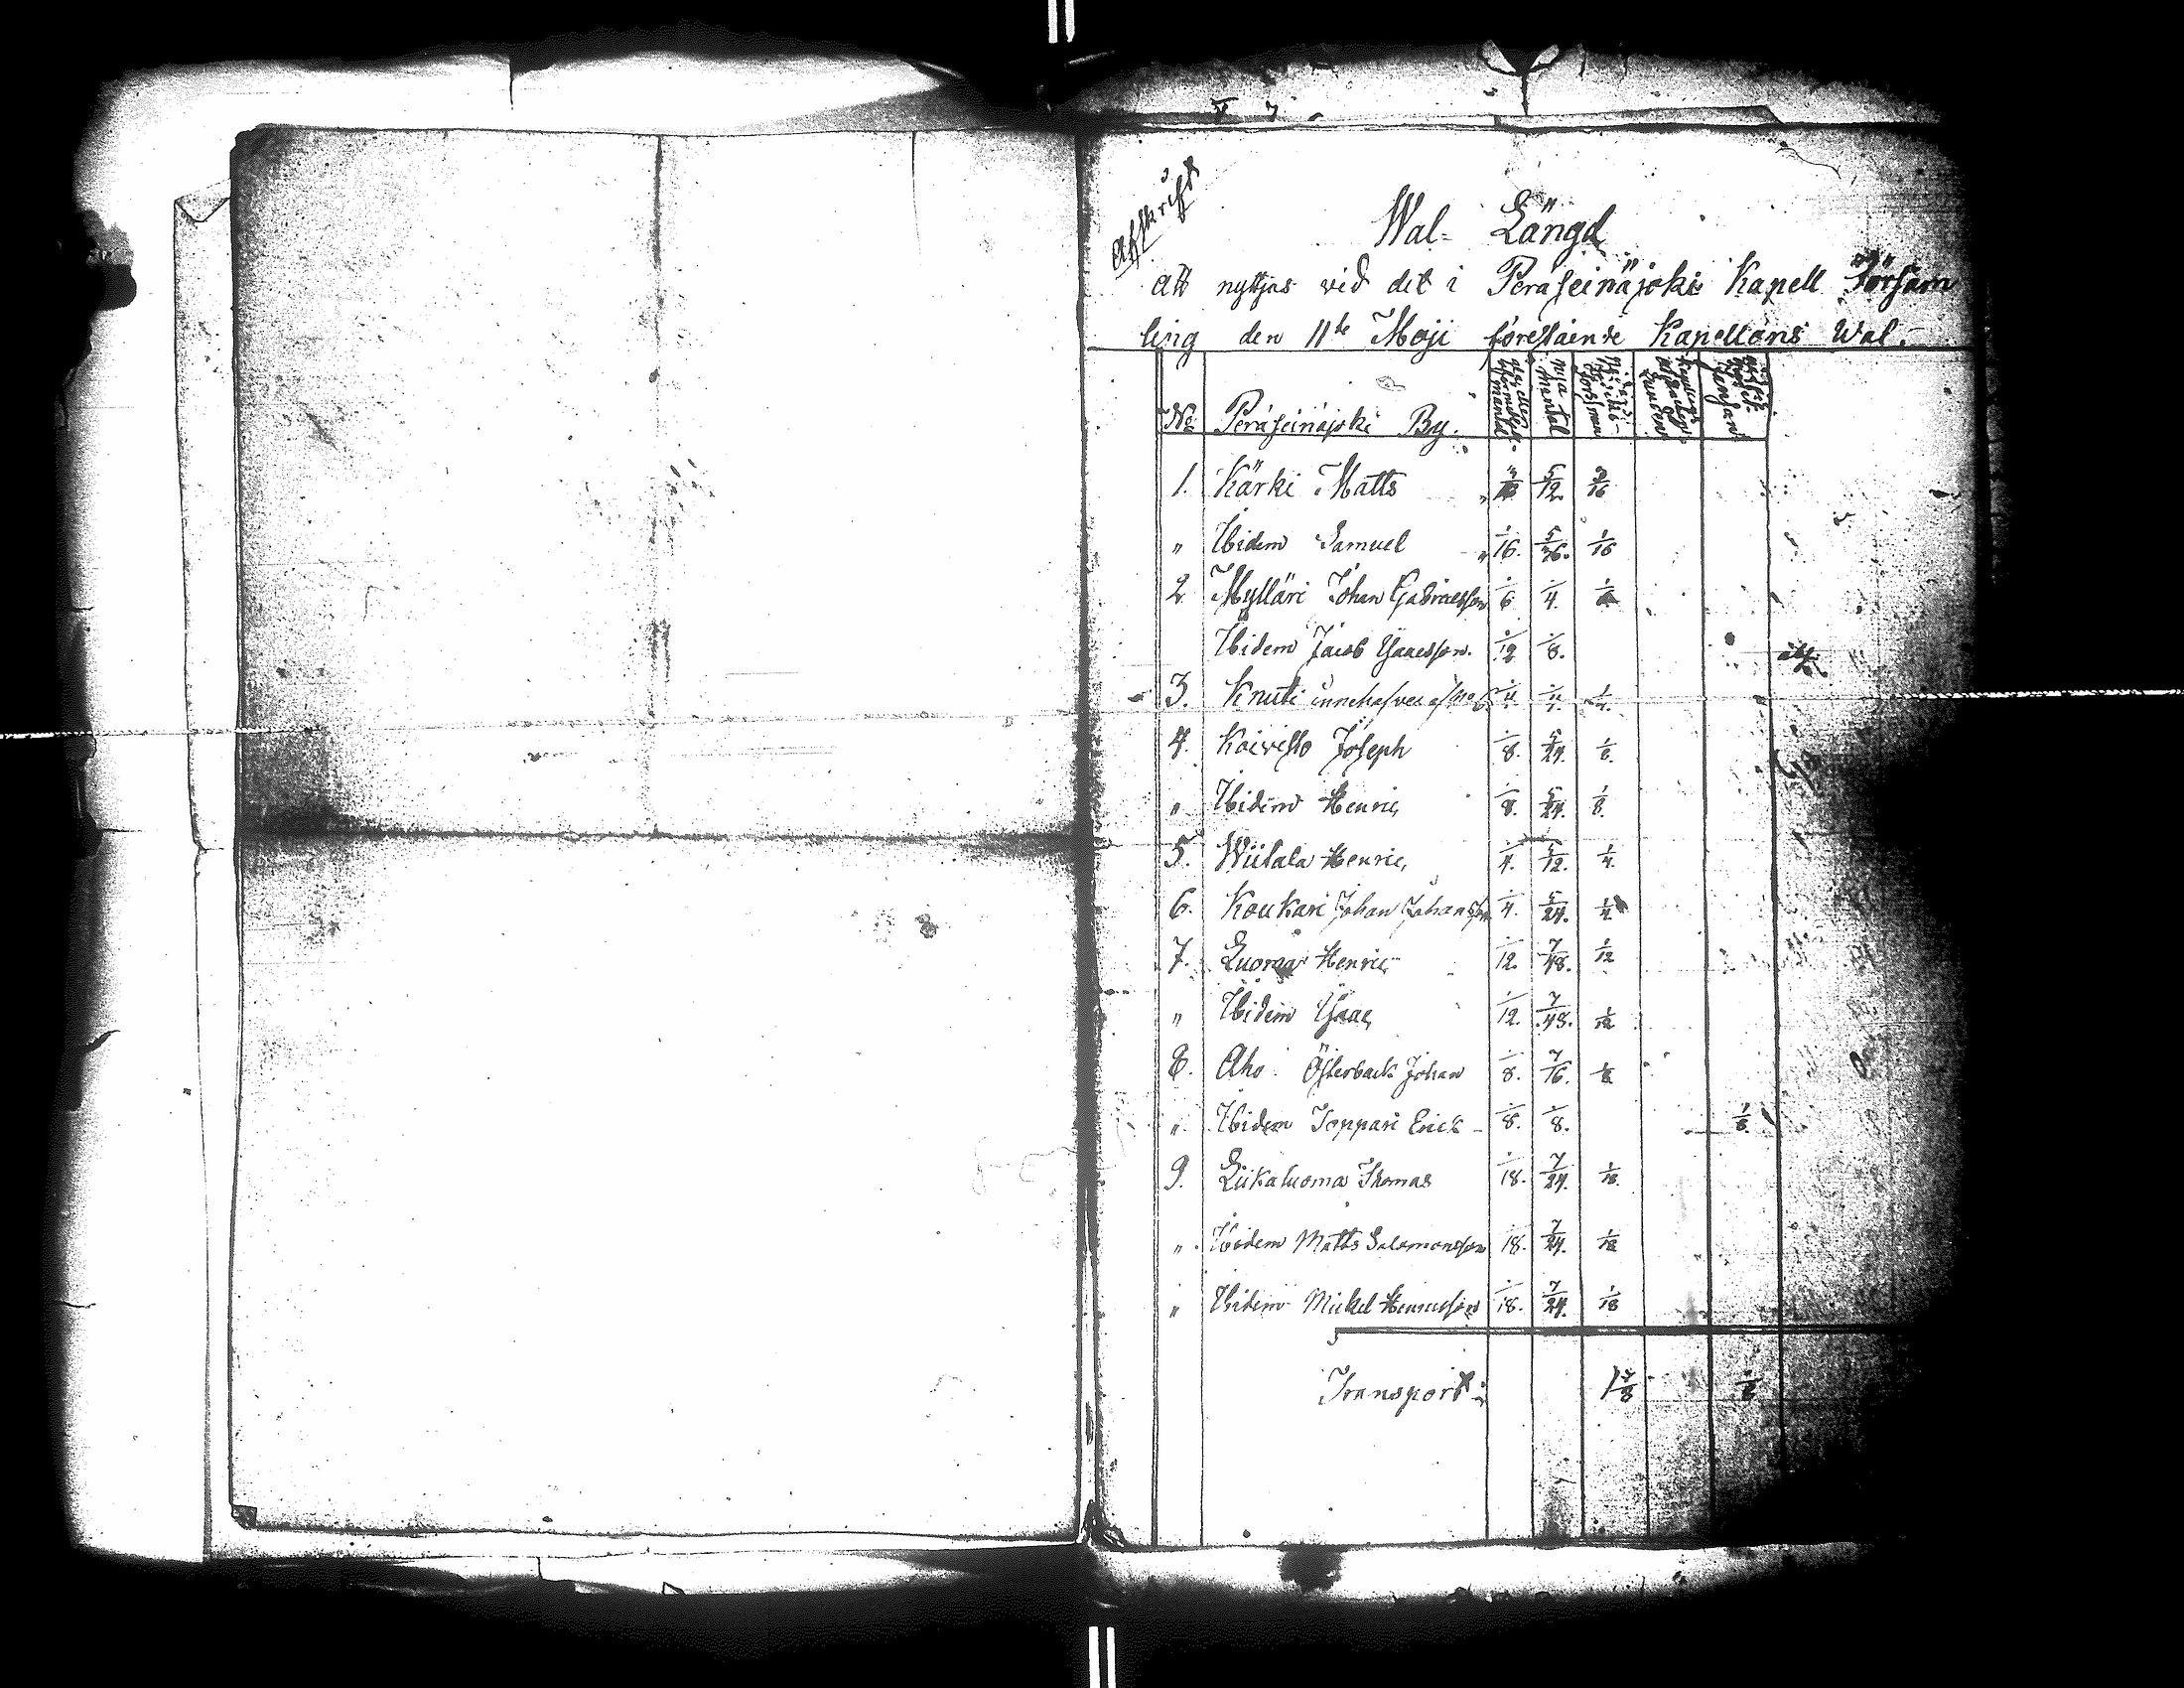 Afskrift
Wal- Längd
att nyttjas vid det i Peräseinäjoki Kapell Församling
den 11te Maji förestående Kapellans Wal.
No Peräseinäjoki By. mantal nya mantal
1. Kärki Matts 5/12 3/16
" Ibidem Samuel 1/16. 1/16
2 Mylläri Johan Gabrielsson 1/6 1/4. 1/6
Ibidem Jacob Isacsson. 1/12 1/8.
3. Knuti innehafves af No 6 1/4. 1/4. 1/4.
4. Koivisto Joseph 1/8. 5/24. 1/8.
" Ibidem Henric 1/8. 5/24. 1/8.
5. Wiitala Henric 1/4. 5/12. 1/4.
6. Koukari Johan Johansson 1/4. 5/24. 1/4
7. Luoma Henric 1/12. 7/48. 1/12
" Ibidem Isaac 1/12. 7/48. 1/12
8. Aho Österback Johan 1/8. 7/16. 1/8
" Ibidem Toppari Erick 1/8. 1/8. 1/8.
9. Liikaluoma Thomas 1/18. 7/24. 1/18.
" Ibidem Matts Salomonsson 1/18. 7/24. 1/18
" Ibidem Mickel Henricsson 1/18. 7/24. 1/18
Transport 1/8